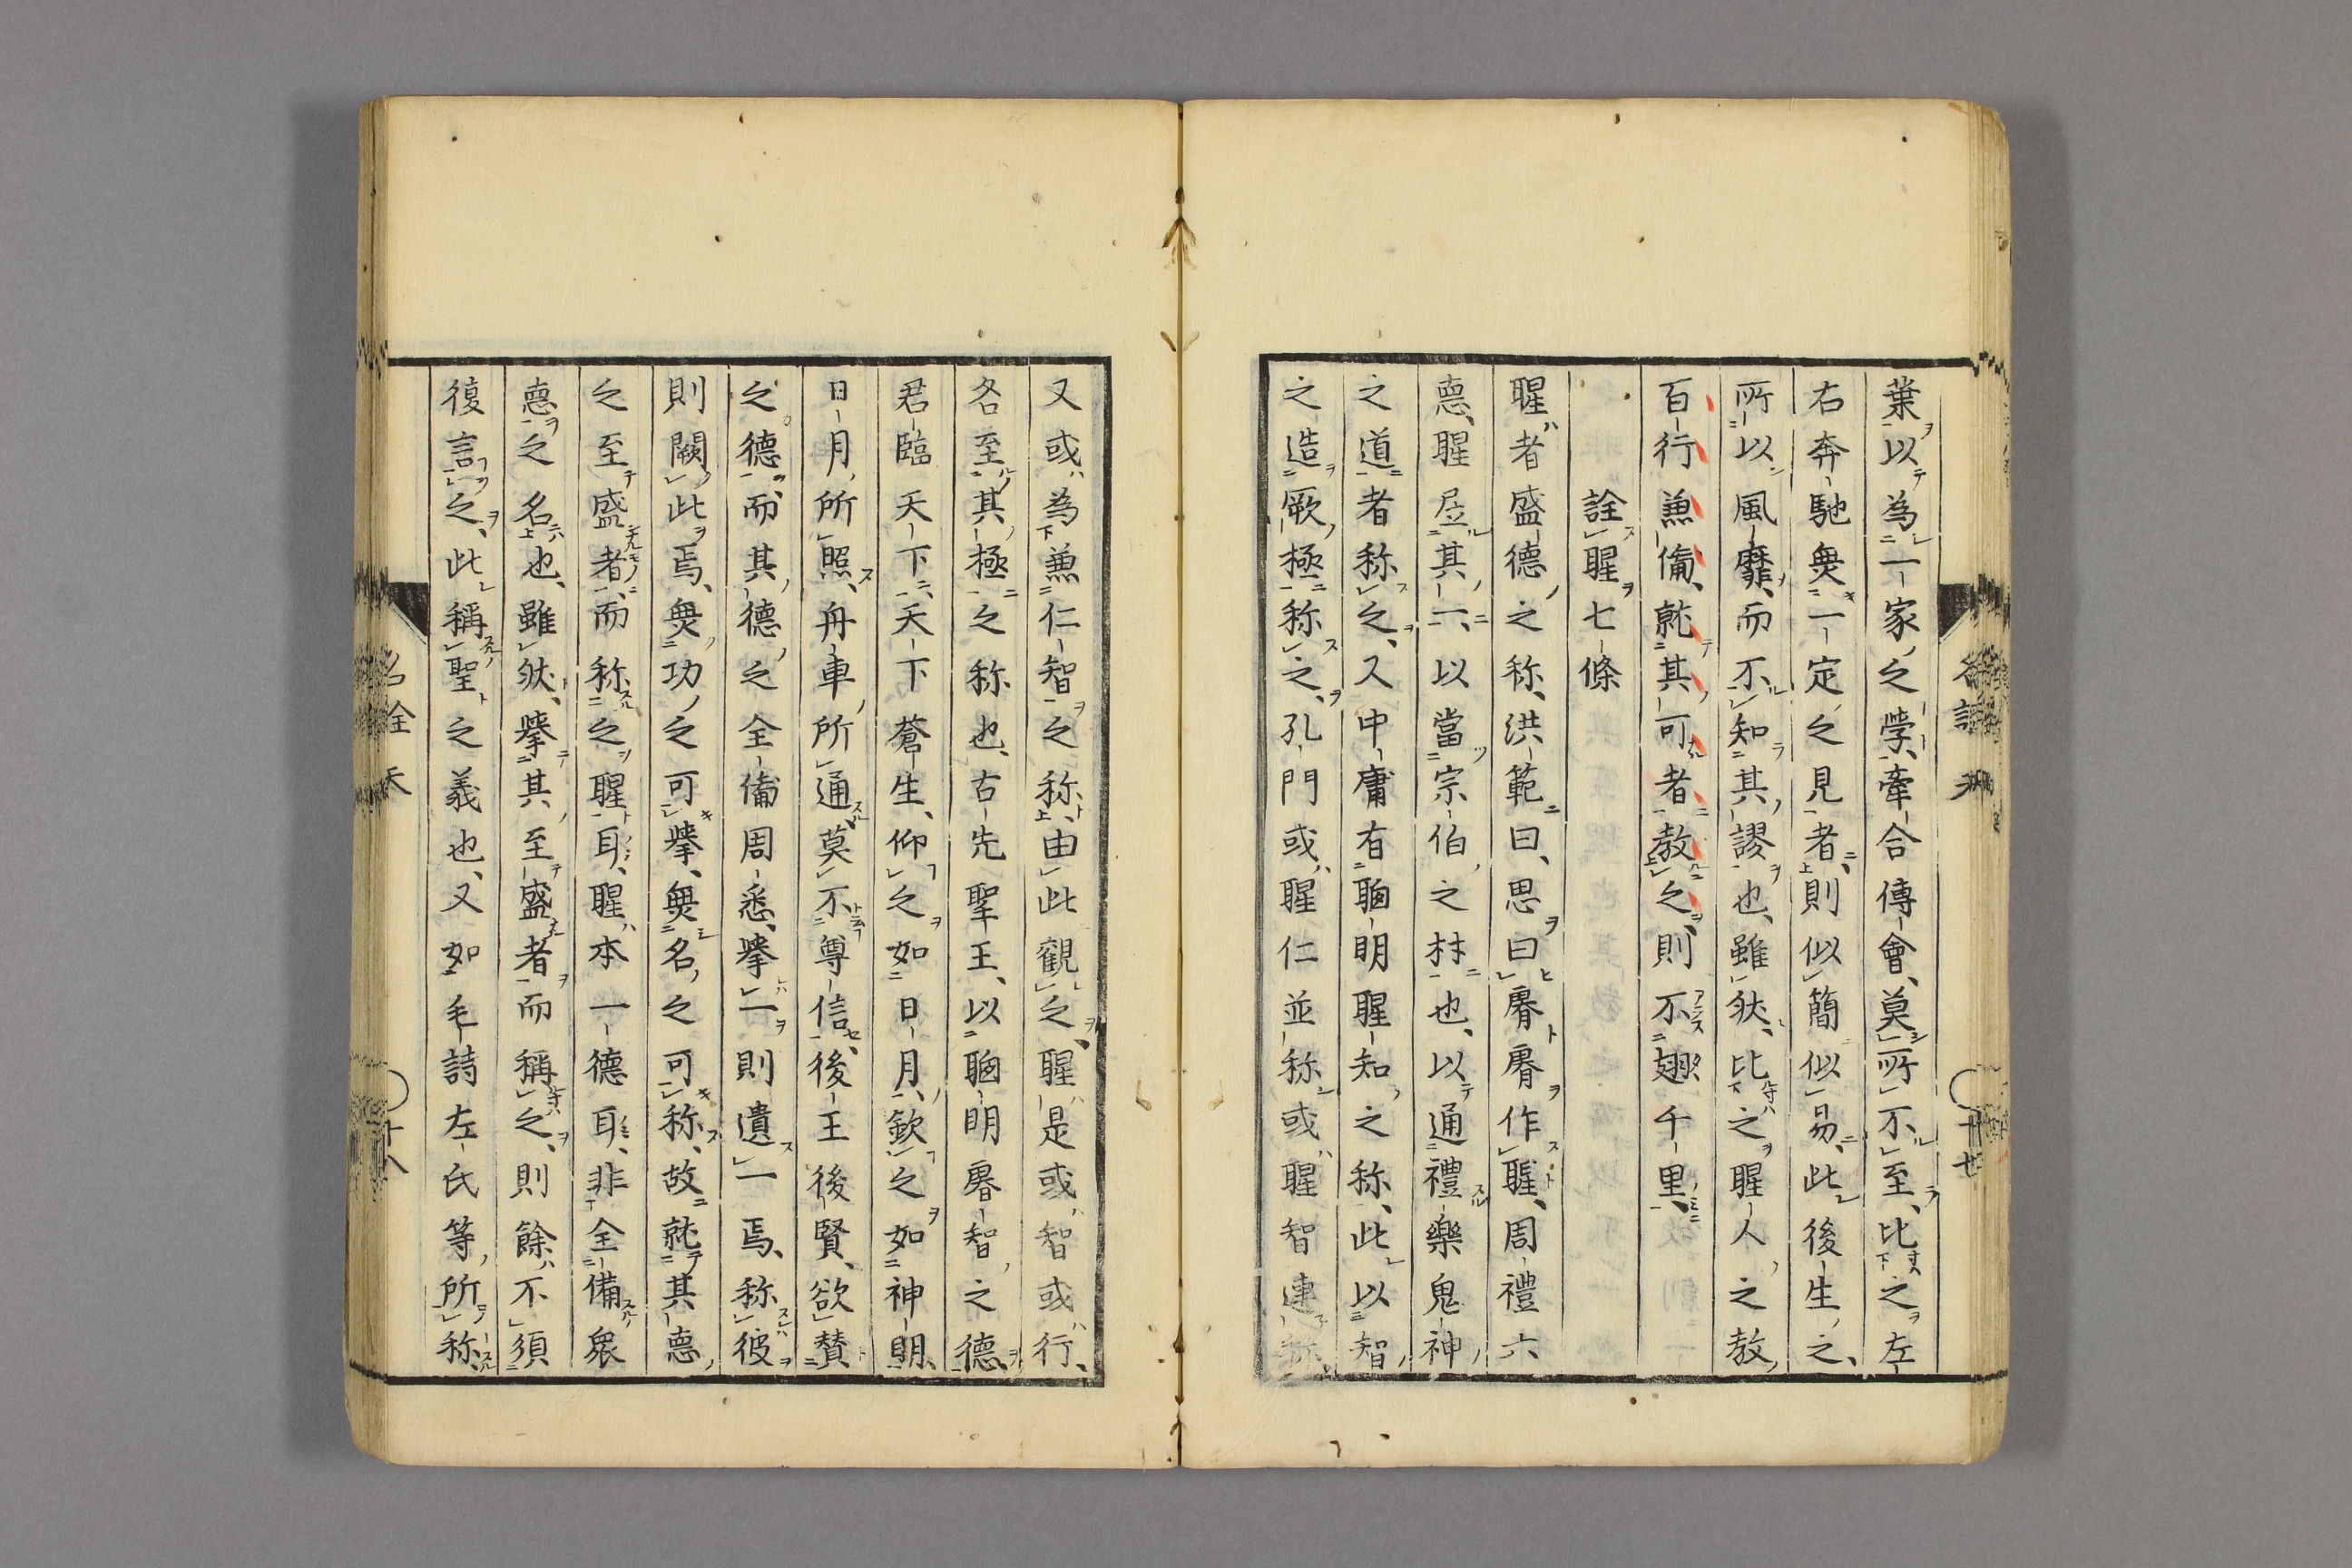 葉以為一家之學牽合傳會莫所不至比之左
右奔馳無一定之見者則似簡似易此後生之
所以風靡而不知其謬也雖然比之聖人之教
百行兼備就其可者教之則不翅千里
詮聖七條
聖者盛德之称洪範曰思曰睿睿作聖周禮六
德聖居其一以當宗伯之材也以通禮樂鬼神
之道者称之又中庸有聰明聖知之称此以智
之造厥極称之孔門或聖仁並称或聖智連称
又或為兼仁智之称由此觀之聖是或智或行
各至其極之称也古先聖王以聰明睿智之德
君臨天下天下蒼生仰之如日月欽之如神明
日月所照舟車所通莫不尊信後王後賢欲賛
之德而其德之全備周悉擧一則遺一焉称彼
則闕此焉無功之可擧無名之可称故就其德
之至盛者而称之聖耳聖本一德耳非全備衆
德之名也雖然擧其至盛者而稱之則餘不須
復言之此稱聖之義也又如毛詩左氏等所称
名詮 天
十八